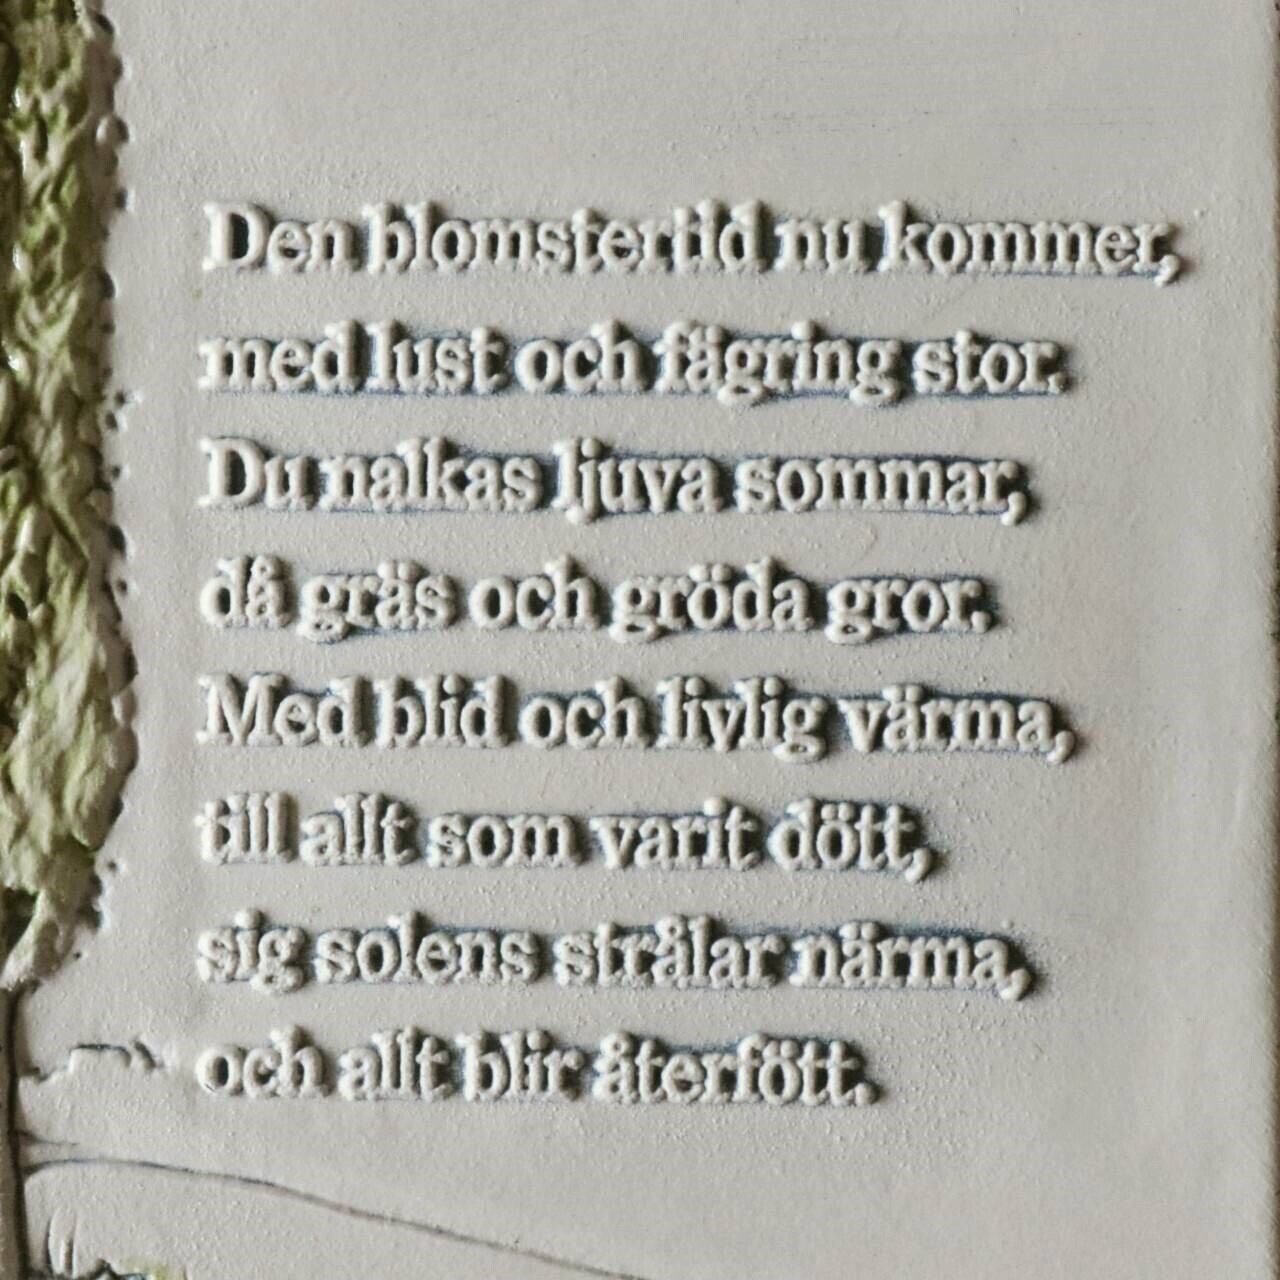 Den blomstertid nu kommer,
med lust och fägring stor.
Du nalkas ljuva sommar,
då gräs och gröda gror.
Med blid och livlig värma,
till allt som varit dött,
sig solens strålar närma,
och allt blir återfött.